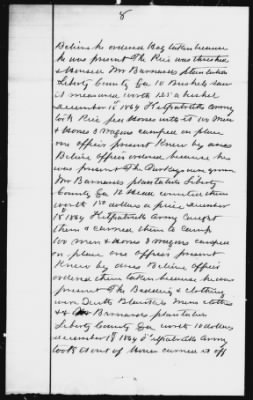 8
Believe he ordered Hog taken because
he was present The Rice was threshed
& Housed Mr Barnards plantation
Liberty County Ga 10 Bushels saw
it measured worth 1.25 a bushel
December 18th 1864 Kilpatricks Army
took Rice fed Horses with it 100 men
& Horses 3 wagons camped on place
one officer present Knew by dress
Believe officer ordered because he
was present The Turkeys were grown
Mr Barnards plantation Liberty
County Ga Head counted them
worth 1 50 dollars a piece December
18th 1864 Kilpatricks Army caught
them & carried them to camp
100 men & Horses 3 wagons camped
on place one officer present
Knew by dress Believe officer
ordered them taken because he was
present The Bedding & clothing
were Quilts Blankets Mens clothes
&c Barnards plantation
Liberty County Ga worth 10 dollars
December 18th 1864 Kilpatricks Army
took it out of House carried it off